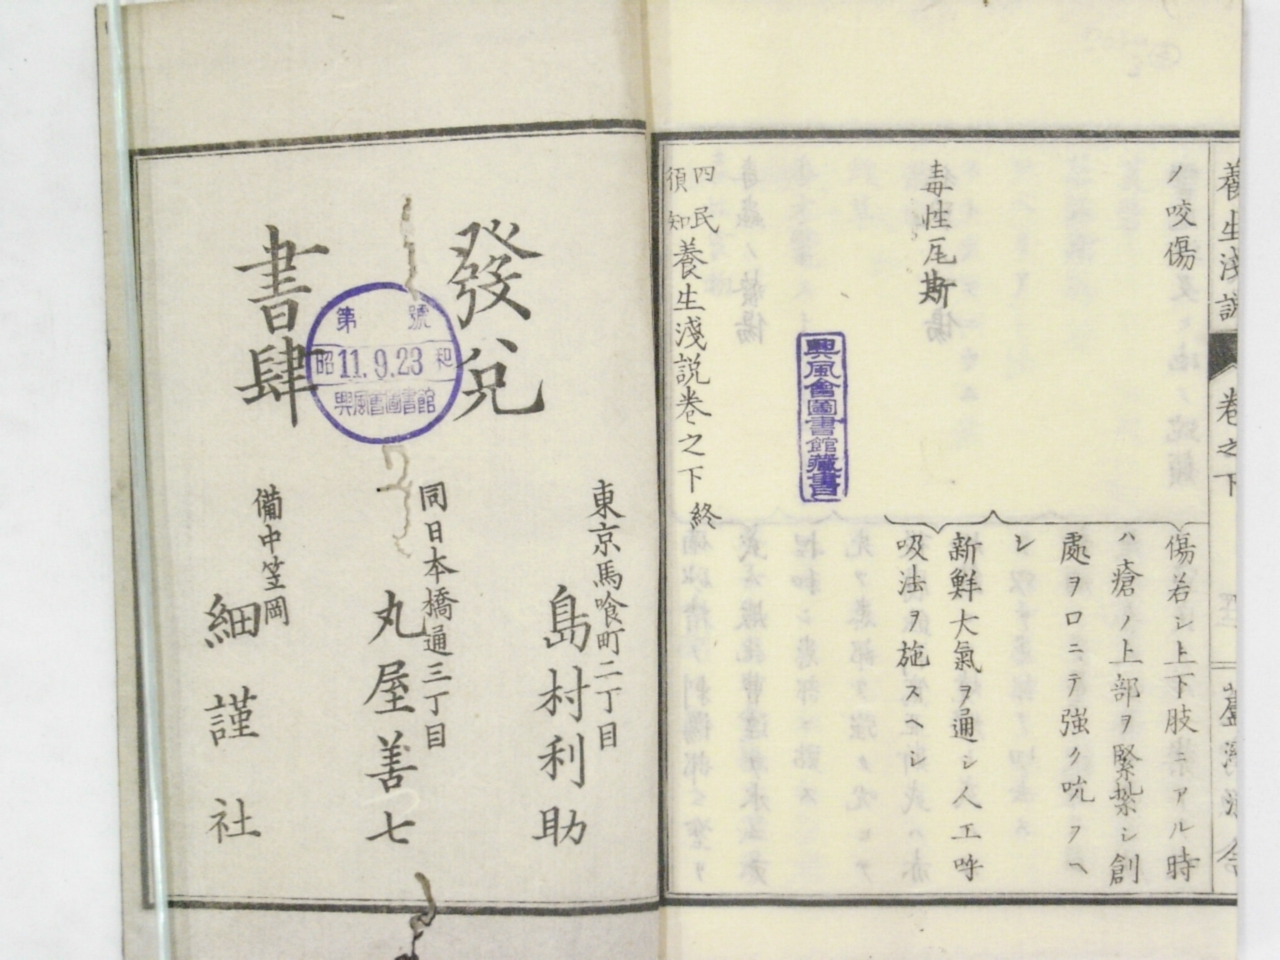 養生淺説
卷之下
ノ咬傷
傷若シ上下肢ニアル時
ハ瘡ノ上部ヲ緊紮シ創
處ヲ口ニテ強ク吮フヘ
シ
毒性瓦斯
新鮮大氣ヲ通シ人工呼
吸法ヲ施スヘシ
興風會圖書館藏書
四民須知養生淺説卷之下終
發兌
書肆
第 號
昭和 11.9.23
興風會圖書館
東京馬喰町二丁目
島村利助
同日本橋通三丁目
丸屋善七
備中笠岡
細謹社